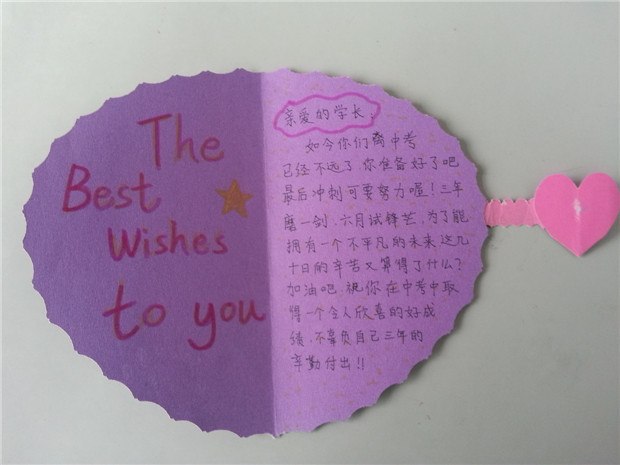 The
Best
Wishes
to you
亲爱的学长:
如今你们离中考
已经不远了 你准备好了吧
最后冲刺可要努力喔！三年
磨一剑.六月试锋芒.为了能
拥有一个不平凡的未来 这几
十日的辛苦又算得了什么？
加油吧.祝你在中考中取
得一个令人欣喜的好成
绩.不辜负自己三年的
辛勤付出!!